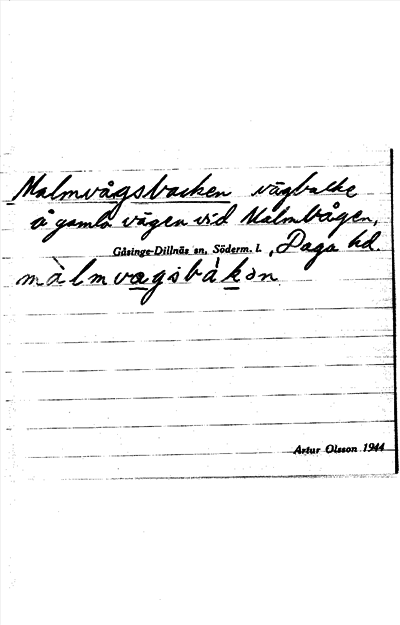 Malmvågsbacken vägbacke
å gamla vägen vid Malmvågen,
Gåsinge-Dillnäs sn, Söderm. l. , Daga hd.
màlmvagsbàkən
Artur Olsson 1944